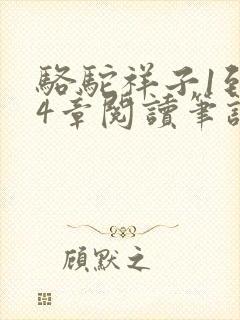 駱駝祥子1到
4章閱讀筆記
顧默之